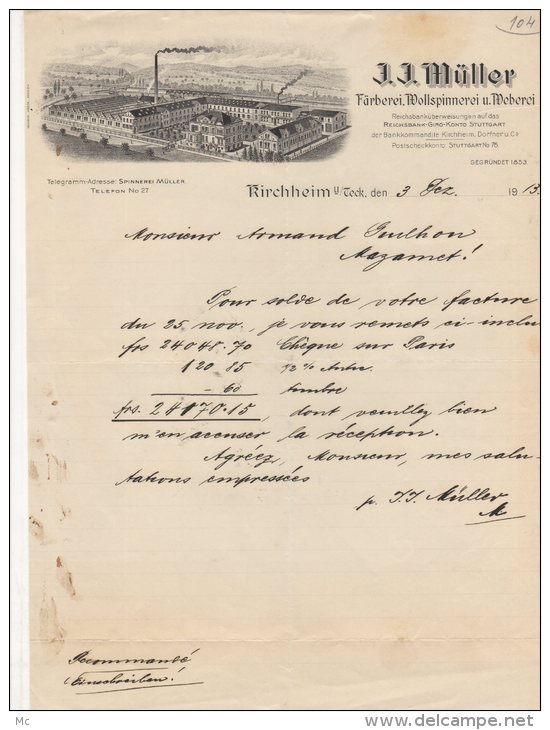 104
J.J. Müller
Färberei, Wollspinnerei u. Weberei
Reichsbanküberweisungen auf das
REICHSBANK-GIRO-KONTO STUTTGART
der Bankkommandite Kirchheim, Dorfner u. Co
Postscheckkonto STUTTGART No 78.
GEGRÜNDET 1833.
Telegramm-Adresse: SPINNEREI MÜLLER.
TELEFON No 27
Kirchheim u/Teck, den 3 Dez. 1913.
Monsieur Armand Guilhon
Mazamet!
Pour solde de votre facture
du 25 nov. je vous remets ci-inclu
frs 24048.70 Chèque sur Paris
120.85 1/2 %
-.60 timbre
frs. 24170.15, dont veuillez bien
m'en accuser la réception.
Agréez, Monsieur, mes salu-
tations empressées
p. J.J. Müller
M
Recommandé
Einschreiben!
Mc
www.delcampe.net